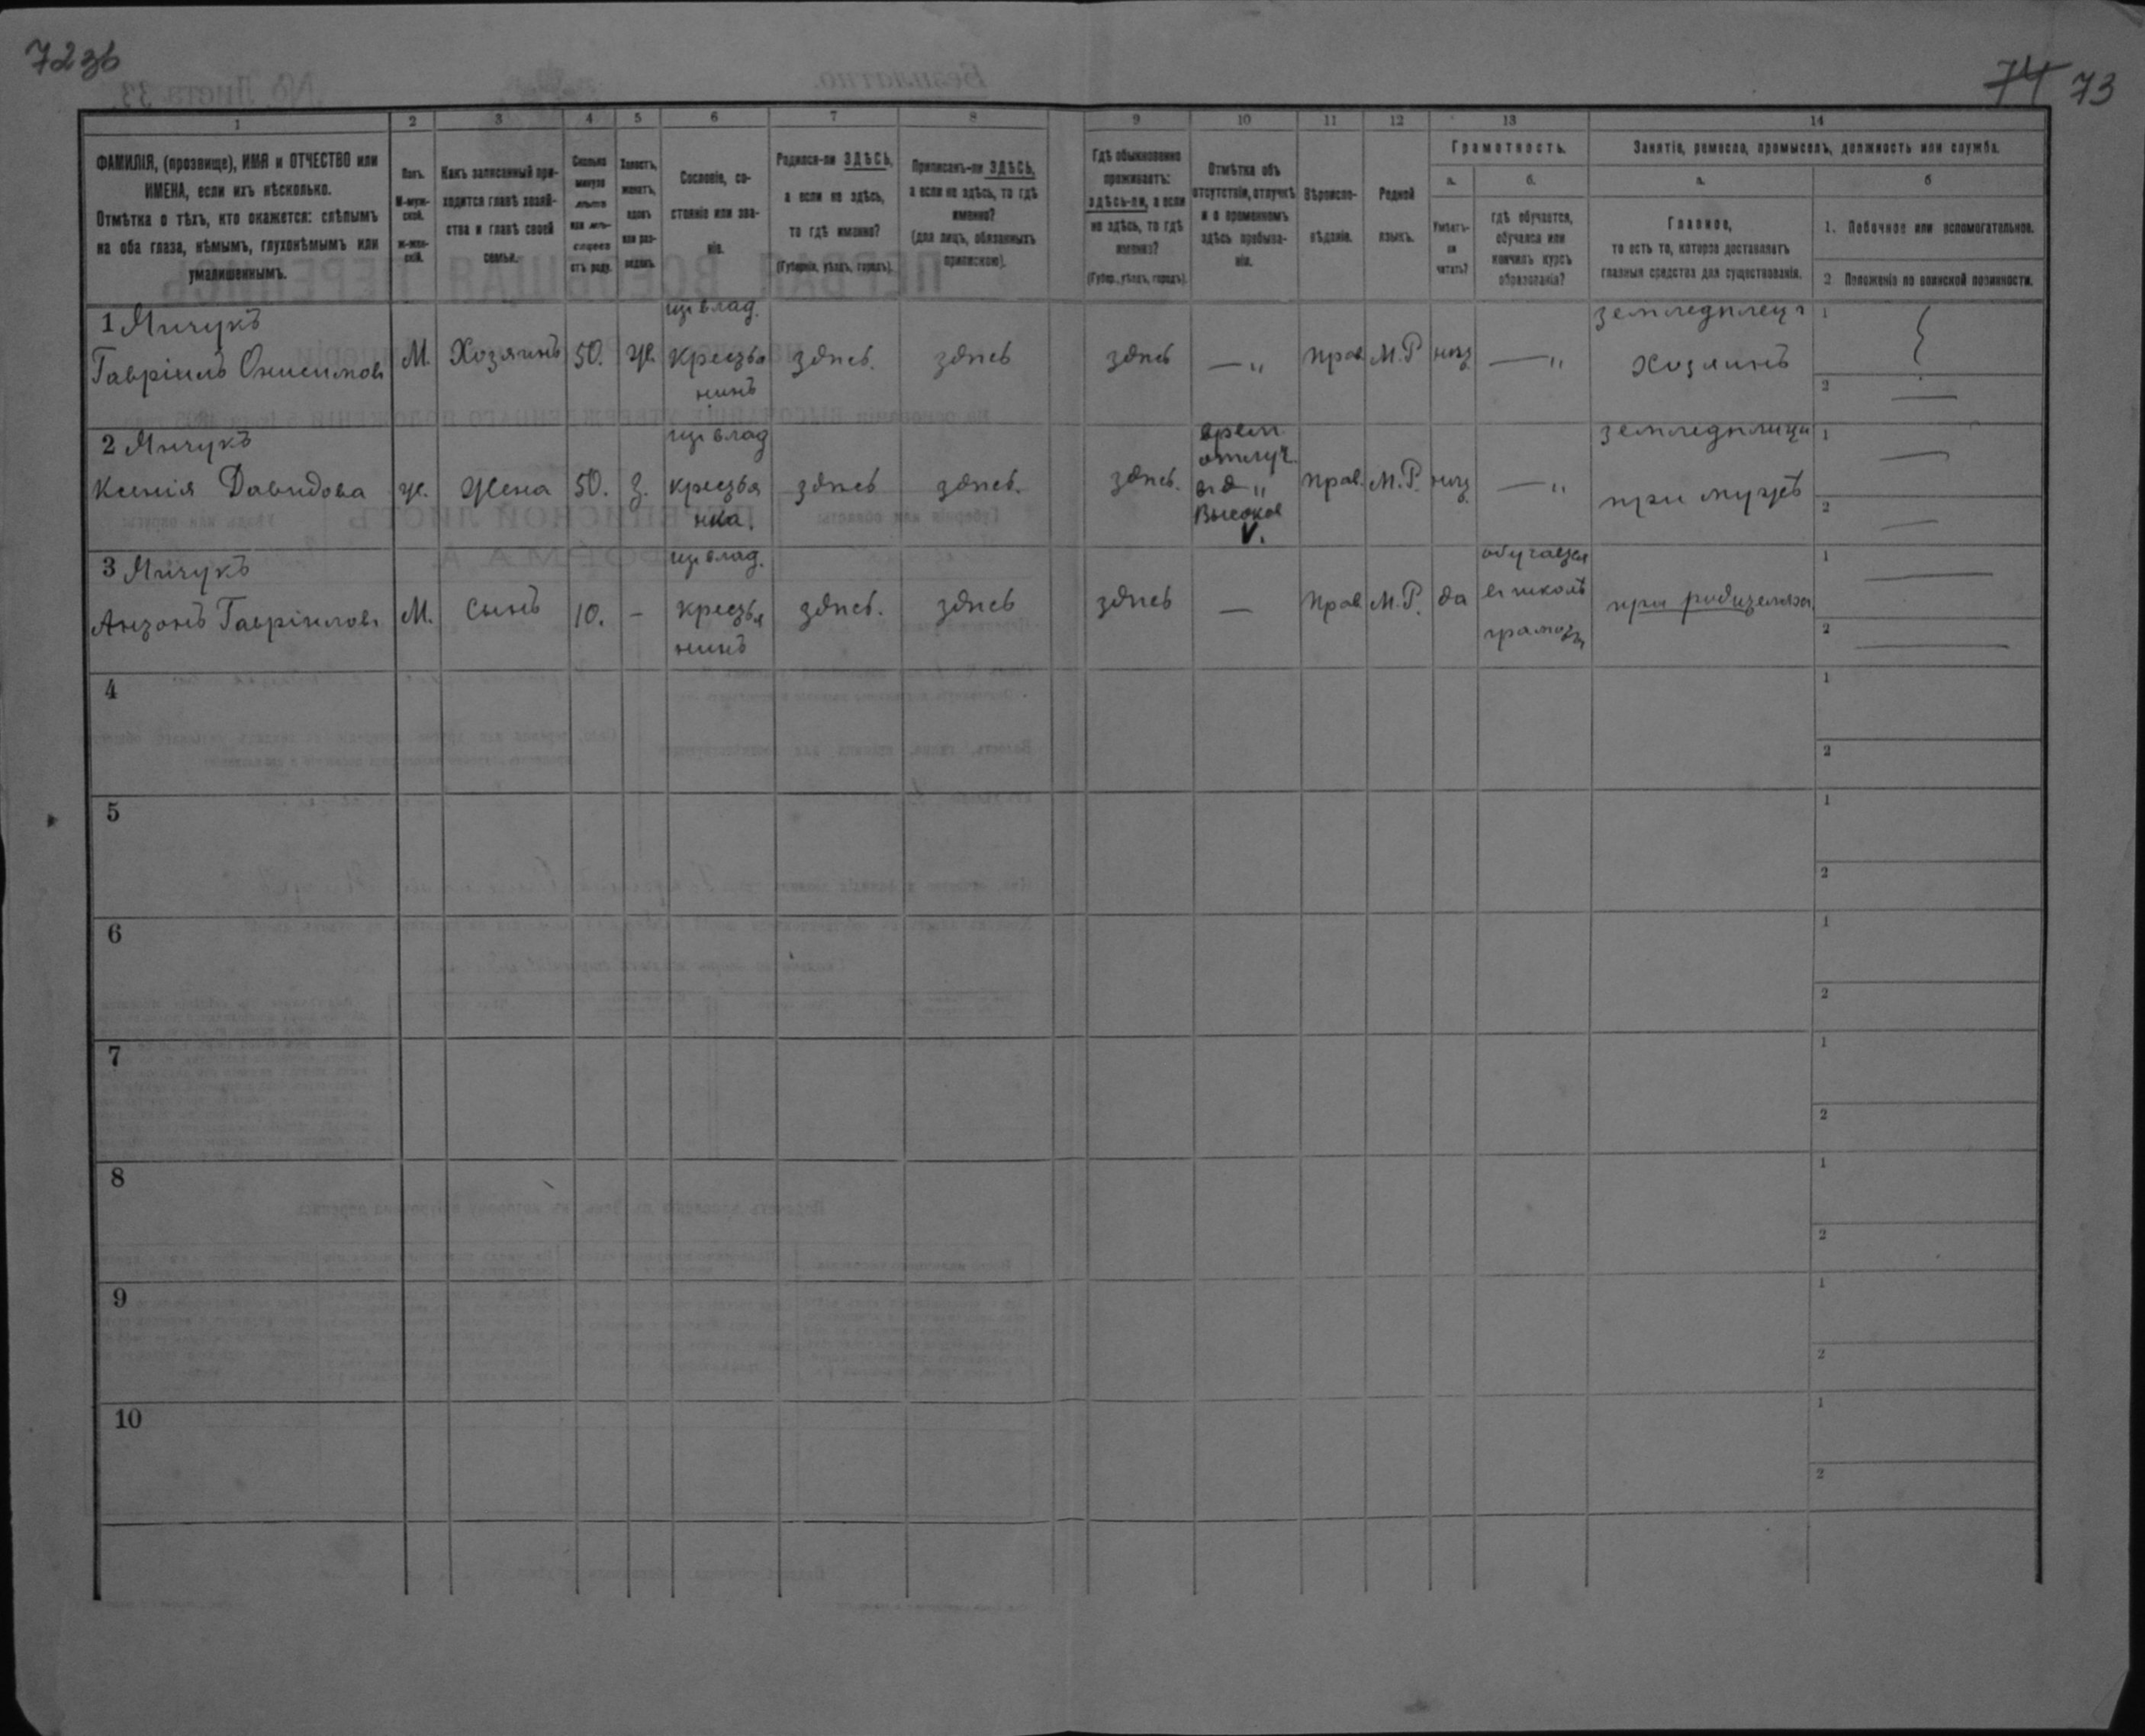 72 зб
74 73
1 2 3 4 5 6 7 8 9 10 11 12 13 14
ФАМИЛІЯ, (прозвище), ИМЯ и ОТЧЕСТВО или
ИМЕНА, если ихъ нѣсколько.
Отмѣтка о тѣхъ, кто окажется: слѣпымъ
на оба глаза, нѣмымъ, глухонѣмымъ или
умалишеннымъ.
Полъ.
М-муж-
ской.
ж-жен-
скій.
Какъ записанный при-
ходится главѣ хозяй-
ства и главѣ своей
семьи.
Сколько
минуло
лѣтъ
или мѣ-
сяцевъ
отъ роду.
Холостъ,
женатъ,
вдовъ
или раз-
веденъ.
Сословіе, со-
стояніе или зва-
ніе.
Родился-ли ЗДѢСЬ,
а если не здѣсь,
то гдѣ именно?
(Губернія, уѣздъ, городъ).
Приписанъ-ли ЗДѢСЬ,
а если не здѣсь, то гдѣ
именно?
(для лицъ, обязанныхъ
припискою).
Гдѣ обыкновенно
проживаетъ:
здѣсь-ли, а если
не здѣсь, то гдѣ
именно?
(Губер., уѣздъ, городъ).
Отмѣтка объ
отсутствіи, отлучкѣ
и о временномъ
здѣсь пребыва-
ніи.
Вѣроиспо-
вѣданіе.
Родной
языкъ.
Грамотность.
а.
Умѣетъ-
ли
читать?
б.
гдѣ обучается,
обучался или
кончилъ курсъ
образованія?
Занятіе, ремесло, промыселъ, должность или служба.
а.
Главное,
то есть то, которое доставляетъ
главныя средства для существованія.
б
1. Побочное или вспомогательное.
2 Положеніе по воинской повинности.
1 Янчукъ
Гавріилъ Онисимовъ
М. Хозяинъ 50. ж.
влад.
Крестья
нинъ
здѣсь. здѣсь здѣсь — „ прав М. Р. нѣт — „
земледѣлецъ
хозяинъ
1
2
2 Янчукъ
Ксенія Давидова
ж. жена 50. з.
влад
крестья
нка.
здѣсь здѣсь. здѣсь.
врем
отлуч.
в д „
Высокое
V.
прав. М. Р. нѣт — „
при мужѣ
1
2
3 Янчукъ
Антонъ Гавріиловъ
М. сынъ 10. –
влад.
крестья
нинъ
здѣсь. здѣсь здѣсь — прав М. Р. да
обучается
в школѣ
грамоты
при родителяхъ
1
2
4
1
2
5
1
2
6
1
2
7
1
2
8
1
2
9
1
2
10
1
2